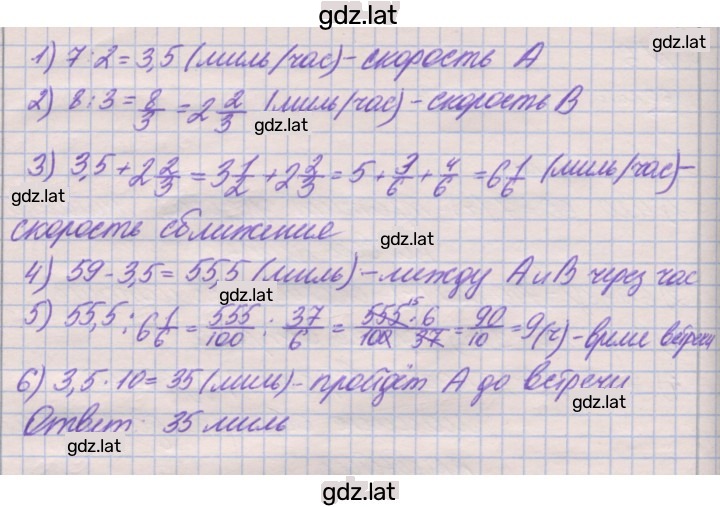 gdz.lat
gdz.lat
1) 7 : 2 = 3,5 (миль/час) - скорость A
2) 8 : 3 = 8/3 = 2 2/3 (миль/час) - скорость B
gdz.lat
3) 3,5 + 2 2/3 = 3 1/2 + 2 2/3 = 5 + 3/6 + 4/6 = 6 1/6 (миль/час) -
gdz.lat
скорость сближение
gdz.lat
4) 59 - 3,5 = 55,5 (миль) - между A и B через час
gdz.lat
5) 55,5 : 6 1/6 = 555/100 : 37/6 = 555 15 · 6/100 · 37 = 90/10 = 9 (ч) - время встречи
6) 3,5 · 10 = 35 (миль) - пройдёт A до встречи
gdz.lat
Ответ: 35 миль
gdz.lat
gdz.lat